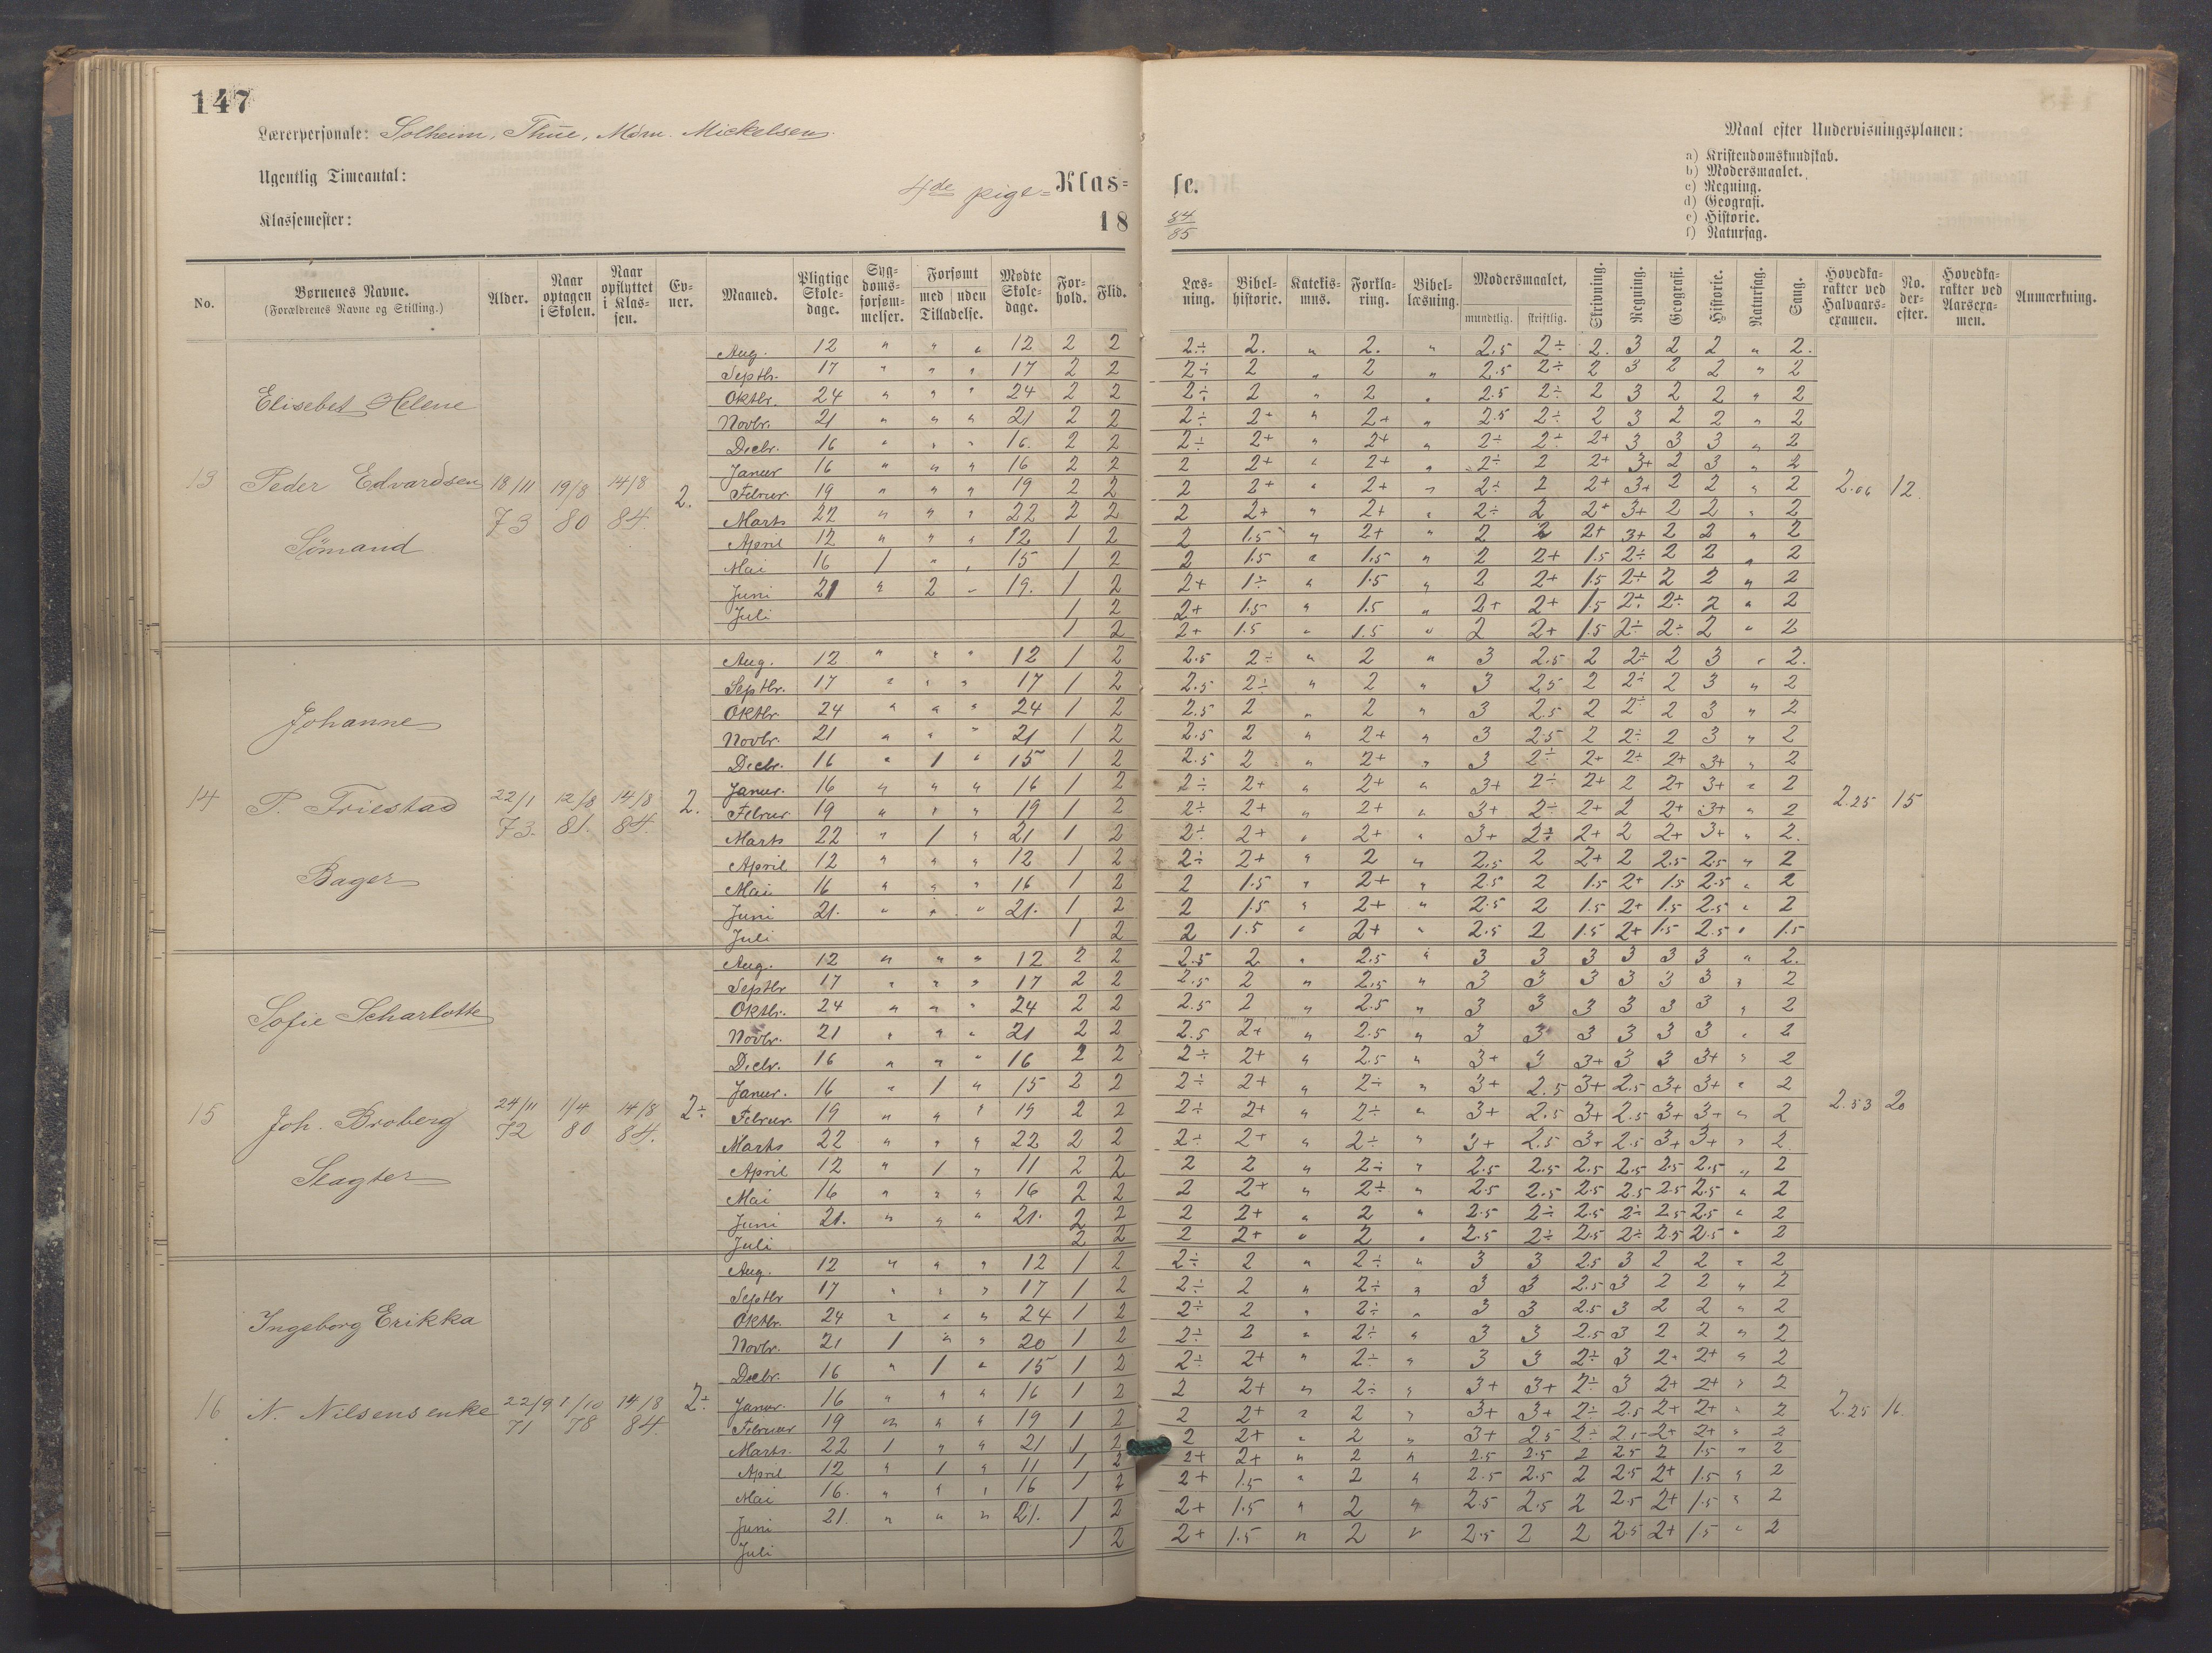 147
Lærerpersonale: Solheim, Thue, Mørn. Mickelsen.
Ugentlig Timeantal:
4de pige= Klas=
Klassemester:
18
No. Børnenes Navne. (Forældrenes Navne og Stilling.) Alder. Naar optagen i Skolen. Naar opflyttet i Klassen. Evner. Maaned. Pligtige Skoledage. Sygdomsforsømmelser. Forsømt med uden Tilladelse. Mødte Skoledage. Forhold. Flid.
Aug. 12 " " " 12 2 2
Septbr. 17 " " " 17 2 2
Oktbr. 24 " " " 24 2 2
Elisebet Helene
Novbr. 21 " " " 21 2 2
Decbr. 16 " " " 16. 2 2
Januar 16 " " " 16 2 2
13 Peder Edvardsen 18/11 73 19/8 80 14/8 84. 2.
Februar 19 " " " 19 2 2
Marts 22 " " " 22 2 2
April 12 " " " 12 1 2
Sømand
Mai 16 1 " " 15 1 2
Juni 21 " 2 " 19. 1 2
Juli 1 2
1 2
Aug. 12 " " " 12 1 2
Septbr. 17 " " " 17 1 2
Oktbr 24 " " " 24 1 2
Johanne
Novbr. 21 " " " 21 1 2
Decbr. 16 " 1 " 15 1 2
Januar. 16 " " " 16 1 2
14 P. Friestad 22/1 73. 12/8 81. 14/8 84. 2.
Februar 19 " " " 19 1 2
Marts 22 " 1 " 21 1 2
April 12 " " " 12 1 2
Bager
Mai 16 " " " 16 1 2
Juni 21. " " " 21. 1 2
Juli 1 2
Aug. 12 " " " 12 2 2
Septbr 17 " " " 17 2 2
Oktbr. 24 " " " 24 2 2
Sofie Scharlotte
Novbr. 21 " " " 21 2 2
Decbr. 16 " " " 16 2 2
Januar. 16 " 1 " 15 2 2
15 Joh. Broberg 24/11 72 1/4 80 14/8 84. 2÷
Februar 19 " " " 19 2 2
Marts 22 " " " 22 2 2
April 12 " 1 " 11 2 2
Slagter
Mai 16 " " " 16 2 2
Juni 21. " " " 21. 2 2
Juli 2 2
Aug. 12 " " " 12 1 2
Septbr 17 " " " 17 1 2
Oktbr. 24 " " " 24 1 2
Ingeborg Erikka
Novbr. 21 1 " " 20 1 2
Decbr. 16 " 1 " 15 1 2
Januar. 16 " " " 16 1 2
16 N. Nilsens enke 22/9 71 1/10 78 14/8 84. 2÷
Februar 19 " " " 19 1 2
Marts. 22 1 " " 21 1 2
April 12 " 1 " 11 1 2
Mai 16. " " " 16 1 2
Juni 21. " " " 21. 1 2
Juli 1 2
Maal efter Undervisningsplanen:
a) Kristendomskundskab.
b) Modersmaalet.
c) Regning.
d) Geografi.
e) Historie.
f) Naturfag.
se.
84/85
Læsning. Bibelhistorie. Katekismus. Forklaring. Bibellæsning. Modersmaalet, mundtlig. skriftlig. Skrivning. Regning. Geografi. Historie. Naturfag. Sang. Hovedkarakter ved Halvaarsexamen. No. derefter. Hovedkarakter ved Aarsexamen. Anmærkning.
2÷ 2. " 2. " 2.5 2÷ 2. 3 2 2 " 2.
2÷ 2 " 2 " 2.5 2÷ 2 3 2 2 " 2
2÷ 2 " 2 " 2.5 2÷ 2 3 2 2 " 2
2÷ 2+ " 2+ " 2.5 2÷ 2 3 2 2 " 2
2÷ 2+ " 2+ " 2÷ 2÷ 2+ 3 3 3 " 2
2 2+ " 2+ " 2÷ 2 2+ 3+ 2 3 " 2
2 2+ " 2+ " 2÷ 2 2+ 3+ 2 2 " 2 2.06 12.
2 2+ " 2+ " 2÷ 2 2+ 3+ 2 2 " 2
2 1.5 " 2+ " 2 2 2+ 3+ 2 2 " 2
2 1.5 " 1.5 " 2 2+ 1.5 2÷ 2 2 " 2
2+ 1÷ " 1.5 " 2 2+ 1.5 2÷ 2 2 " 2
2+ 1.5 " 1.5 " 2+ 2+ 1.5 2÷ 2÷ 2 " 2
2+ 1.5 " 1.5 " 2 2+ 1.5 2÷ 2÷ 2 " 2
2.5 2÷ " 2 " 3 2.5 2 2÷ 2 3 " 2.
2.5 2÷ " 2 " 3 2.5 2 2÷ 2 3 " 2
2.5 2 " 2 " 3 2.5 2 2÷ 2 3 " 2
2.5 2 " 2+ " 3 2.5 2 2÷ 2 3 " 2
2.5 2 " 2+ " 3 2÷ 2+ 2÷ 2+ 3+ " 2
2÷ 2+ " 2+ " 3+ 2÷ 2+ 2 2+ 3+ " 2
2÷ 2+ " 2+ " 3+ 2÷ 2+ 2 2+ 3+ " 2 2.25 15
2÷ 2+ " 2+ " 3+ 2÷ 2+ 2 2+ 3+ " 2.
2÷ 2+ " 2 " 2.5 2 2+ 2 2.5 2.5 " 2
2 1.5 " 2+ " 2.5 2 1.5 2+ 1.5 2.5 " 2
2 1.5 " 2+ " 2.5 2 1.5 2+ 1.5 2.5 " 2
2 1.5 " 2+ " 2.5 2 1.5 2+ 1.5 2.5 " 1.5
2.5 2 " 2.5 " 3 3 3 3 3 3 " 2.
2.5 2 " 2.5 " 3 3 3 3 3 3 " 2
2.5 2 " 2.5 " 3 3 3 3 3 3 " 2
2.5 2+ " 2.5 " 3 3 3 3 3 3 " 2
2÷ 2+ " 2.5 " 3+ 3 3+ 3 3 3+ " 2
2÷ 2+ " 2÷ " 3+ 2.5 3+ 2.5 3+ 3+ " 2
2÷ 2+ " 2÷ " 3+ 2.5 3+ 2.5 3+ 3+ " 2 2.53 20
2÷ 2+ " 2÷ " 3+ 2.5 3+ 2.5 3+ 3+ " 2
2 2 " 2÷ " 2.5 2.5 2.5 2.5 2.5 2.5 " 2
2 2+ " 2÷ " 2.5 2.5 2.5 2.5 2.5 2.5 " 2
2 2+ " 2 " 2.5 2÷ 2.5 2÷ 2.5 2.5 " 2
2 2+ " 2 " 2.5 2÷ 2.5 2÷ 2.5 2.5 " 2
2÷ 2 " 2÷ " 3 3 2.5 3 2 2 " 2
2÷ 2 " 2÷ " 3 3 2.5 3 2 2 " 2
2÷ 2 " 2÷ " 3 3 2.5 3 2 2 " 2
2÷ 2 " 2÷ " 3 3 2.5 3 2 2 " 2
2÷ 2+ " 2÷ " 3 3 2÷ 3 2+ 2+ " 2
2 2+ " 2÷ " 3+ 3+ 2÷ 3 2+ 2+ " 2
2 2+ " 2 " 3+ 3+ 2÷ 2.5 2+ 2+ " 2 2.25 16.
2 2+ " 2 " 3+ 2.5 2÷ 2.5 2+ 2+ " 2
2+ 2+ " 2 " 2.5 2.5 2 2.5 2 1.5 " 2
2+ 1.5 " 2 " 2.5 2.5 2 2.5 2+ 1.5 " 2
2+ 1.5 " 2 " 2.5 2.5 2 2.5 2+ 1.5 " 2
2+ 1.5 " 2 " 2.5 2 2 2.5 2+ 1.5 " 2